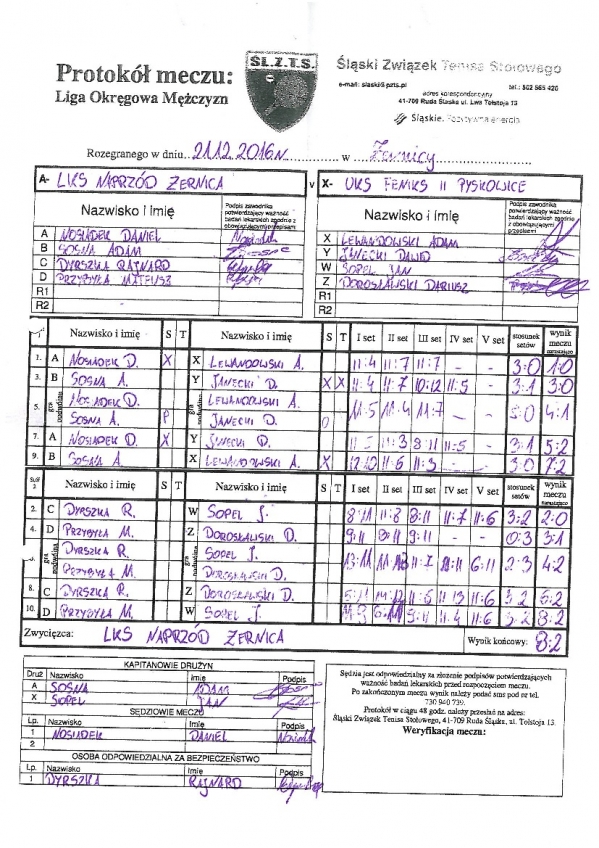 Protokół meczu:
Liga Okręgowa Mężczyzn
ŚL.Z.T.S.
Śląski Związek Tenisa Stołowego
e-mail: slaski@pzts.pl tel.: 502 565 420
adres korespondencyjny
41-709 Ruda Śląska ul. Lwa Tołstoja 13
Śląskie. Pozytywna energia
Rozegranego w dniu. 21.12.2016 r. w Żernicy
A- LKS NAPRZÓD ŻERNICA v X- UKS FENIKS II PYSKOWICE
Nazwisko i imię Podpis zawodnika potwierdzający ważność badań lekarskich zgodnie z obowiązującymi przepisami Nazwisko i imię Podpis zawodnika potwierdzający ważność badań lekarskich zgodnie z obowiązującymi przepisami
A NOSIADEK DANIEL X LEWANDOWSKI ADAM
B SOSNA ADAM Y JANECKI DAWID
C DYRSZKA RAJNARD W SOPEL JAN
D PRZYBYŁA MATEUSZ Z DOROSŁAWSKI DARIUSZ
R1 R1
R2 R2
Nazwisko i imię S T Nazwisko i imię S T I set II set III set IV set V set stosunek setów wynik meczu narastająco
1. A NOSIADEK D. X X LEWANDOWSKI A. 11:4 11:7 11:7 - - 3:0 1:0
3. B SOSNA A. Y JANECKI D. X X 11:4 11:7 10:12 11:5 - 3:1 3:0
5. gra podwójna NOSIADEK D. gra podwójna LEWANDOWSKI A. 11:5 11:4 11:7 - - 3:0 4:1
SOSNA A. P JANECKI D. O
7. A NOSIADEK D. X Y JANECKI D. 11:3 8:11 11:5 - 3:1 5:2
9. B SOSNA A. X LEWANDOWSKI A. X 12:10 11:6 11:3 - - 3:0 7:2
Nazwisko i imię S T Nazwisko i imię S T I set II set III set IV set V set stosunek setów wynik meczu narastająco
2. C DYRSZKA R. W SOPEL J. 8:11 11:8 8:11 11:7 11:6 3:2 2:0
4. D PRZYBYŁA M. Z DOROSŁAWSKI D. 9:11 8:11 9:11 - - 0:3 3:1
gra podwójna DYRSZKA R. gra podwójna SOPEL J. 13:11 9:11 6:11 2:3 4:2
PRZYBYŁA M. DOROSŁAWSKI D.
8. C DYRSZKA R. Z DOROSŁAWSKI D. 5:11 11:6 11:13 11:6 3:2 6:2
10. D PRZYBYŁA M. W SOPEL J. 9:11 11:4 11:6 3:2 8:2
Zwycięzca: LKS NAPRZÓD ŻERNICA Wynik końcowy: 8:2
KAPITANOWIE DRUŻYN
Druż Nazwisko Imię Podpis
A SOSNA ADAM
X SOPEL JAN
SĘDZIOWIE MECZU
Lp. Nazwisko Imię Podpis
1 NOSIADEK DANIEL
2
OSOBA ODPOWIEDZIALNA ZA BEZPIECZEŃSTWO
Lp. Nazwisko Imię Podpis
1 DYRSZKA RAJNARD
Sędzia jest odpowiedzialny za złożenie podpisów potwierdzających
ważność badań lekarskich przed rozpoczęciem meczu.
Po zakończonym meczu wynik należy podać sms pod nr tel.
730 940 739.
Protokół w ciągu 48 godz. należy przesłać na adres:
Śląski Związek Tenisa Stołowego, 41-709 Ruda Śląska, ul. Tołstoja 13.
Weryfikacja meczu: